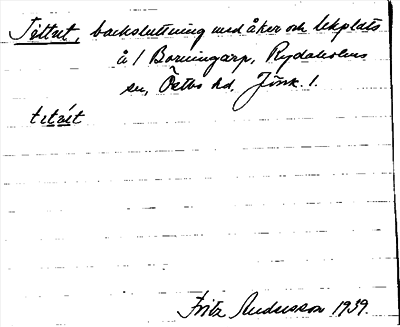 Tittut, backsluttning med åker och lekplats
å 1 Borningarp, Rydaholms
sn, Östbo hd, Jönk. l.
titút
Fritz Andersson 1939.